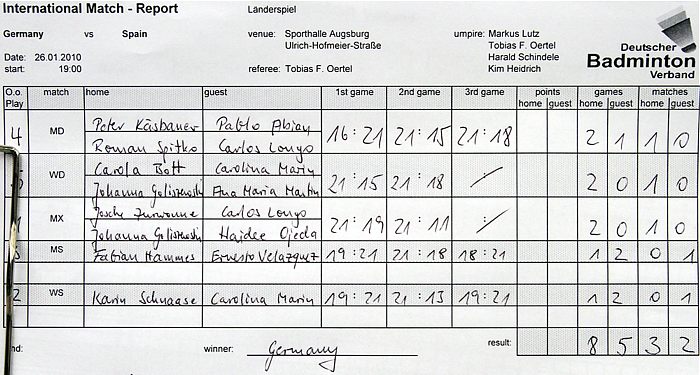 International Match - Report Länderspiel
Germany vs Spain venue: Sporthalle Augsburg umpire: Markus Lutz
Ulrich-Hofmeier-Straße Tobias F. Oertel
Date: 26.01.2010 Harald Schindele
start: 19:00 referee: Tobias F. Oertel Kim Heidrich
Deutscher
Badminton
Verband
O.o. Play match home guest 1st game 2nd game 3rd game points games matches
home guest home guest home guest
4 MD Peter Käsbauer Pablo Abian 16:21 21:15 21:18 2 1 1 0
Roman Spitko Carlos Longo
WD Carola Bott Carolina Marin 21:15 21:18 2 0 1 0
Johanna Goliszewski Ana Maria Martin
MX Carlos Longo 21:19 21:11 2 0 1 0
Johanna Goliszewski Haidee Ojeda
3 MS Fabian Hammes Ernesto Velazquez 19:21 21:18 18:21 1 2 0 1
2 WS Karin Schnaase Carolina Marin 19:21 21:13 19:21 1 2 0 1
nd: winner: Germany result: 8 5 3 2